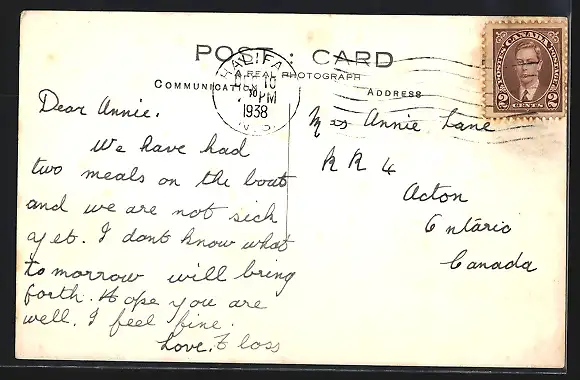 POST : CARD
A REAL PHOTOGRAPH
COMMUNICATION
ADDRESS
HALIFAX
10
PM
1938
N.S.
POSTES CANADA POSTAGE
2 CENTS 2
Dear Annie.
We have had
two meals on the boat
and we are not sick
yet. I dont know what
tomorrow will bring
forth. Hope you are
well. I feel fine.
Love. Floss
Miss Annie Lane
R R 4
Acton
Ontario
Canada